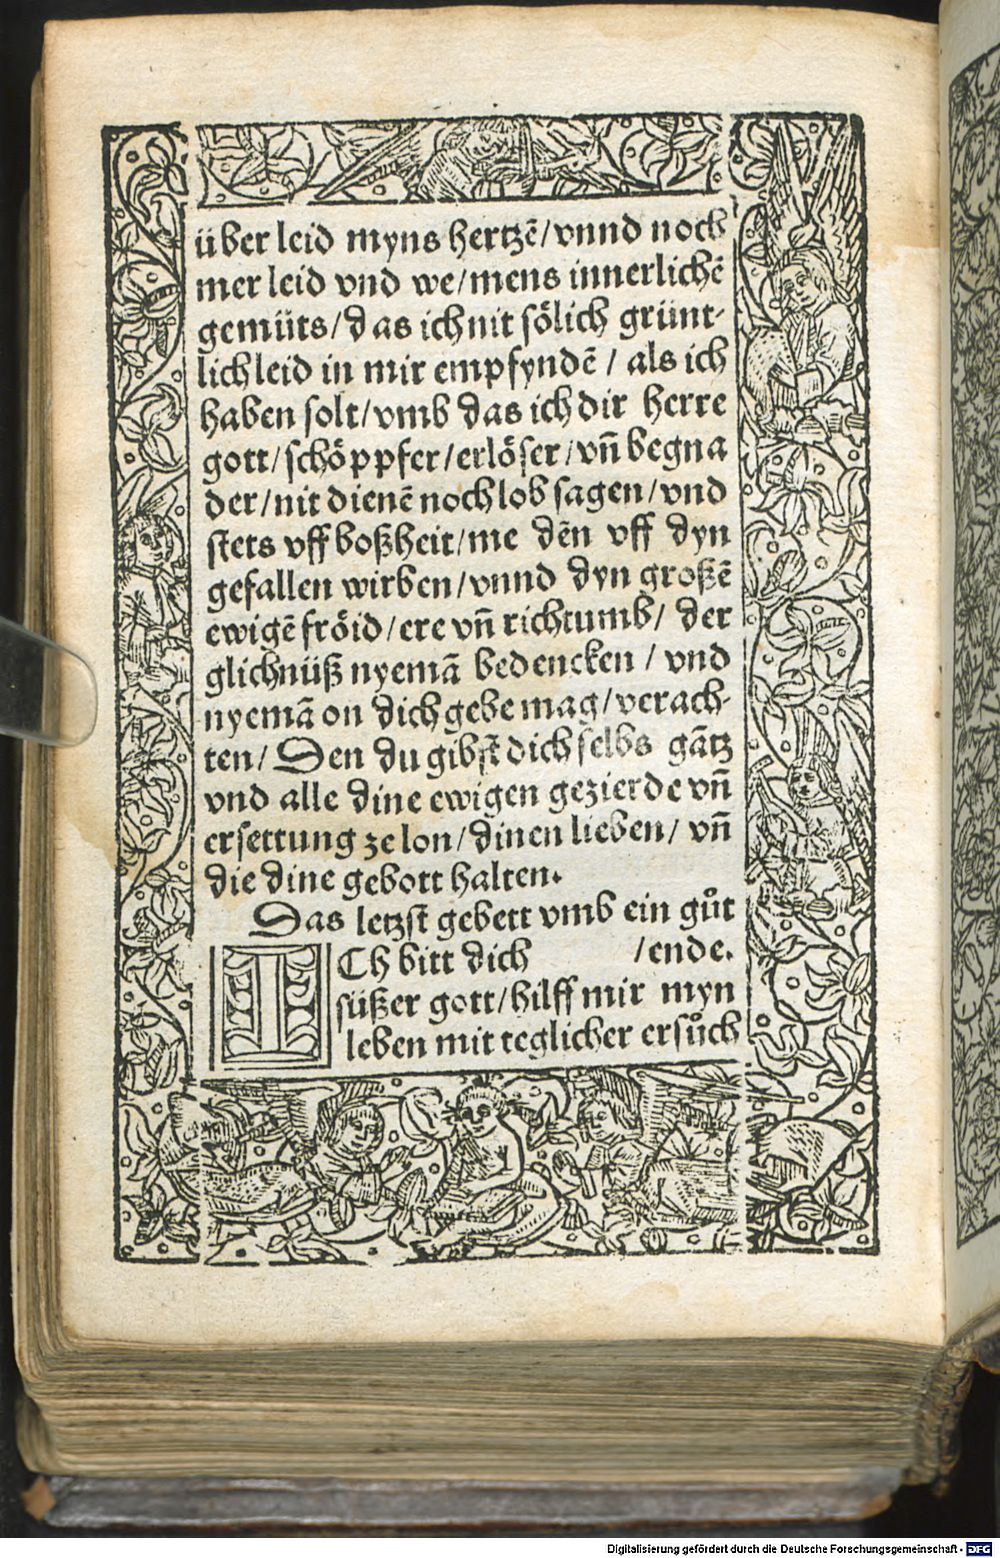 über leid myns hertzē/vnnd noch
mer leid vnd we/mens innerlichē
gemüts/das ich nit sölich grünt-
lich leid in mir empfyndē / als ich
haben solt/vmb das ich dir herre
gott/schöppfer/erlöser/vn̄ begna
der/nit dienē noch lob sagen/vnd
stets vff boßheit/me dēn vff dyn
gefallen wirben/vnnd dyn großē
ewigē fröid/ere vn̄ richtumb/ der
glichnüß nyemā bedencken / vnd
nyemā on dich gebe mag/verach-
ten/ Den du gibst dich selbs gātz
vnd alle dine ewigen gezierde vn̄
ersettung ze lon/dinen lieben/ vn̄
die dine gebott halten.
Das letzst gebett vmb ein gůt
ICh bitt dich /ende.
süßer gott/hilff mir myn
leben mit teglicher ersůch
Digitalisierung gefördert durch die Deutsche Forschungsgemeinschaft - DFG